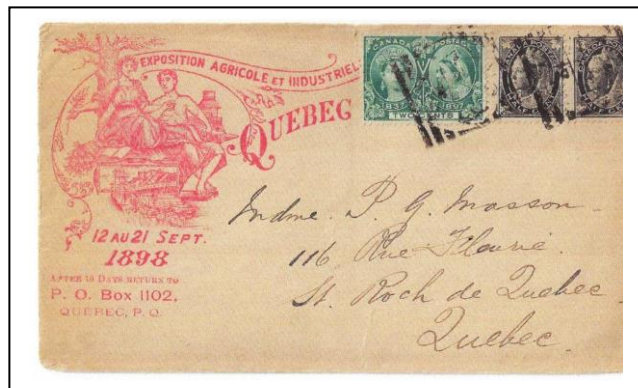 EXPOSITION AGRICOLE ET INDUSTRIEL
QUEBEC
12 AU 21 SEPT.
1898
AFTER 10 DAYS RETURN TO
P. O. Box 1102,
QUEBEC, P. Q.
CANADA POSTAGE
1837 1897
TWO CENTS
Mdme. P. G. Masson
116 Rue Fleurie.
St. Roch de Quebec.
Quebec.